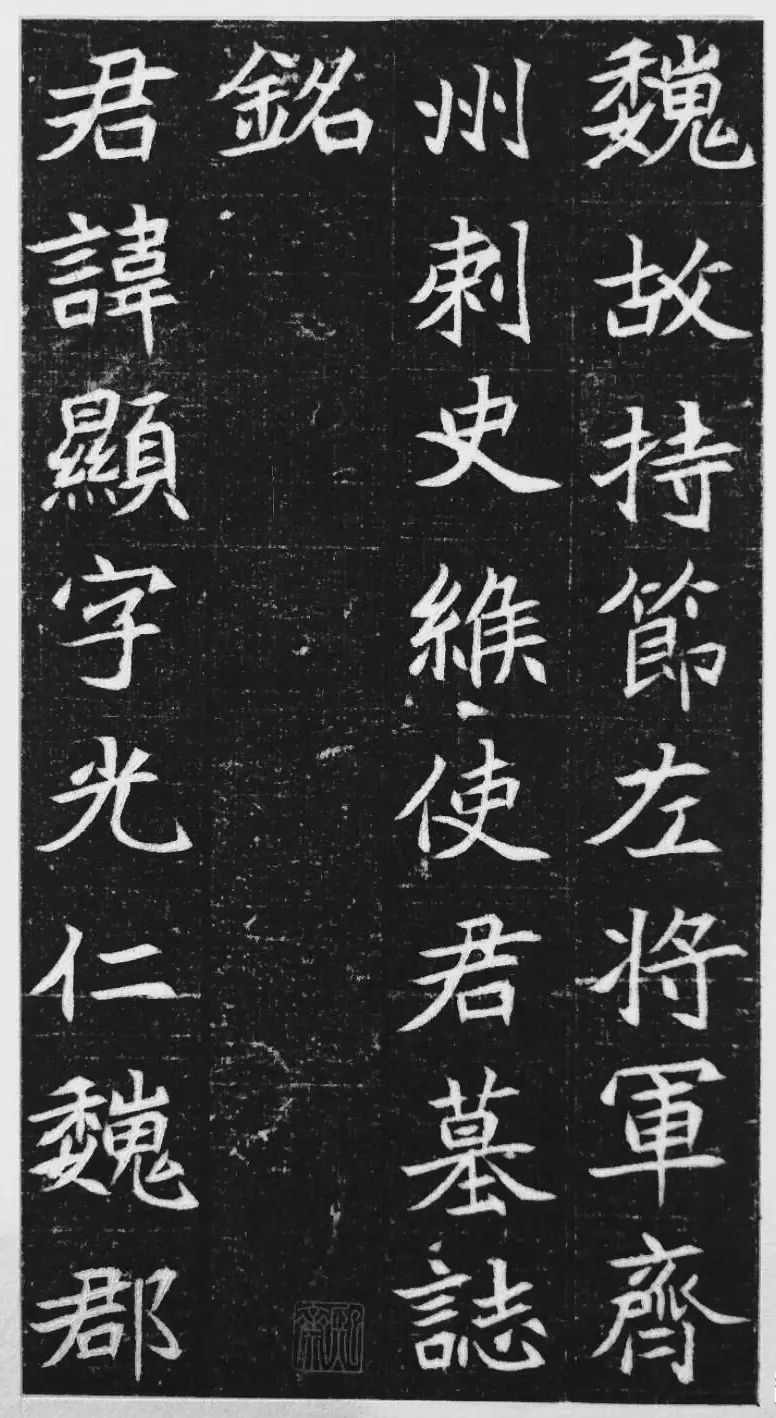 魏故持節左将軍齊
州刺史緱使君墓誌
銘
君諱顯字光仁魏郡